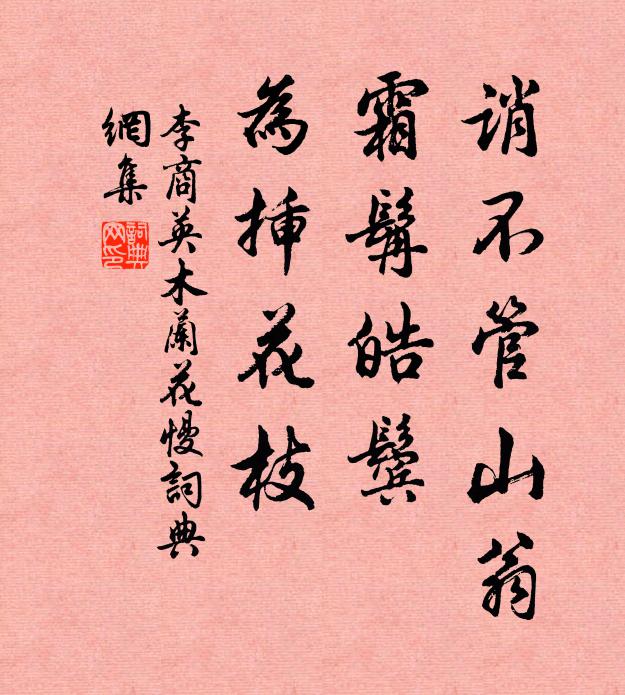 誚不管山翁
霜髯皓鬢
為挿花枝
李商英木蘭花慢詞典
網集
詞典網印